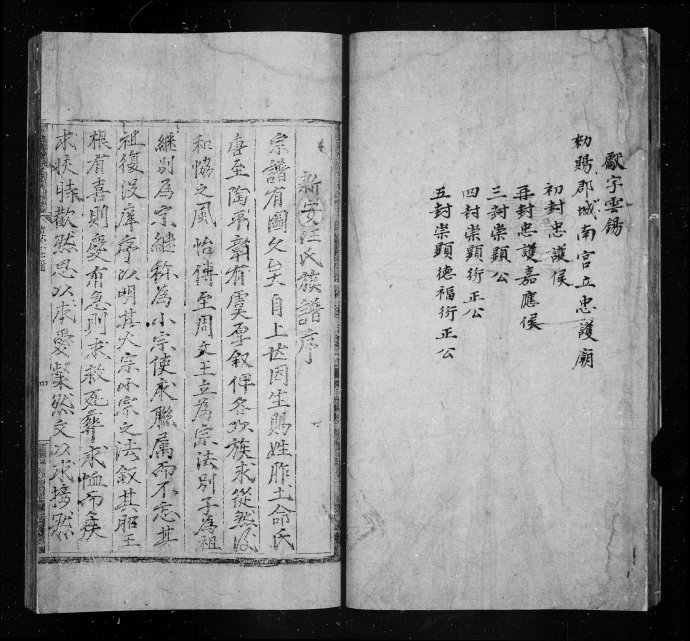 獻字雲錫
勑賜郡城南宫立忠護廟
初封忠護侯
再封忠護嘉應侯
三封崇顯公
四封崇顯衍正公
五封崇顯德福衍正公
新安汪氏族譜序
宗譜有圖久矣自上世因生賜姓胙土命氏
唐至陶平章有虞孕敘俾各坎族求從然後
和協之風怡傳至周文王立為宗法別子為祖
継別為宗継称為小宗使求聮属而不忘其
祖復设庠序以明其大宗小宗之法叙其昭王
根有喜則慶有急則求救死葬求恤而疾
求扶時歡然思以求愛粲然文以求接然